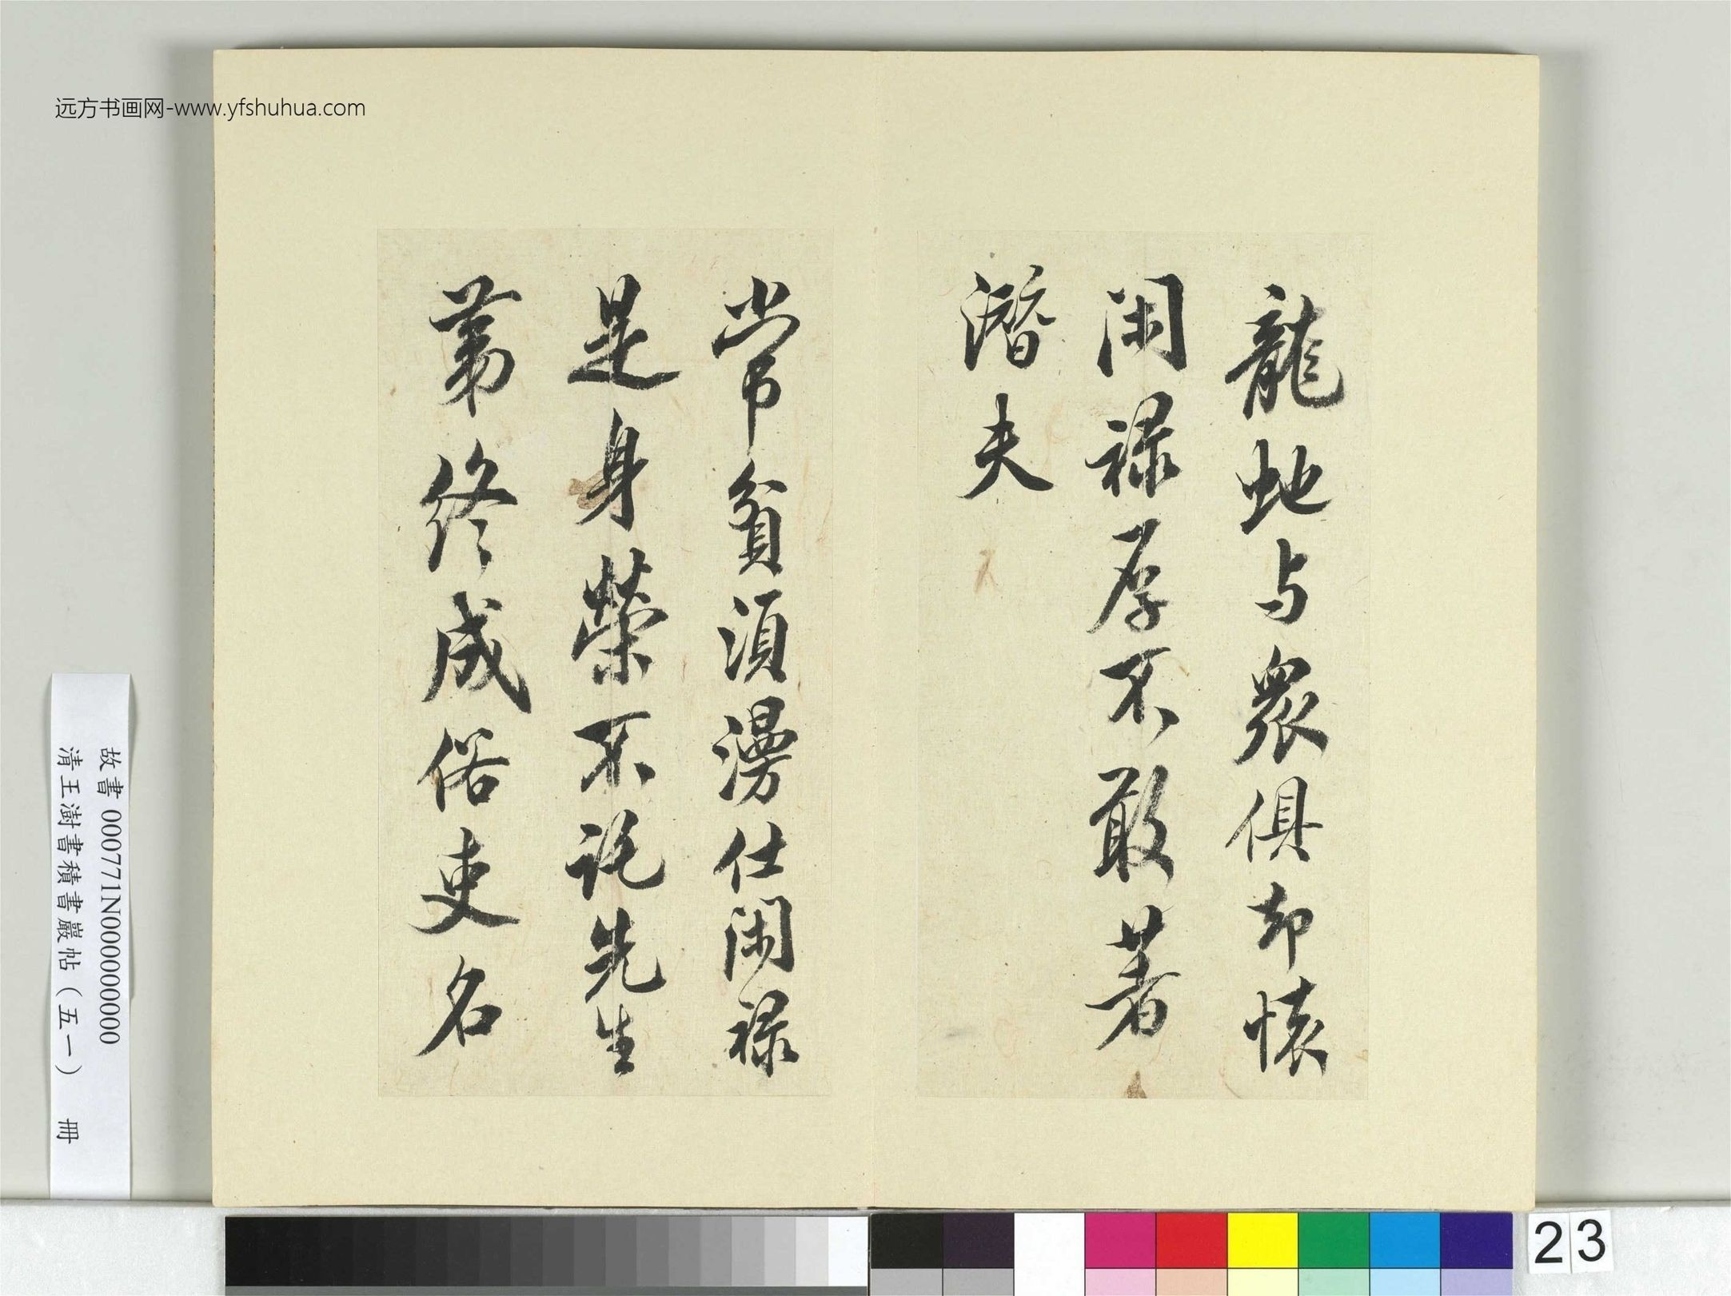 龍蛇与衆俱却懐
閑禄厚不敢著
潛夫
常貧須漫仕閑禄
是身榮不託先生
第終成俗吏名
远方书画网-www.yfshuhua.com
故書 000771N000000000
清王澍書積書巖帖（五一） 冊
23